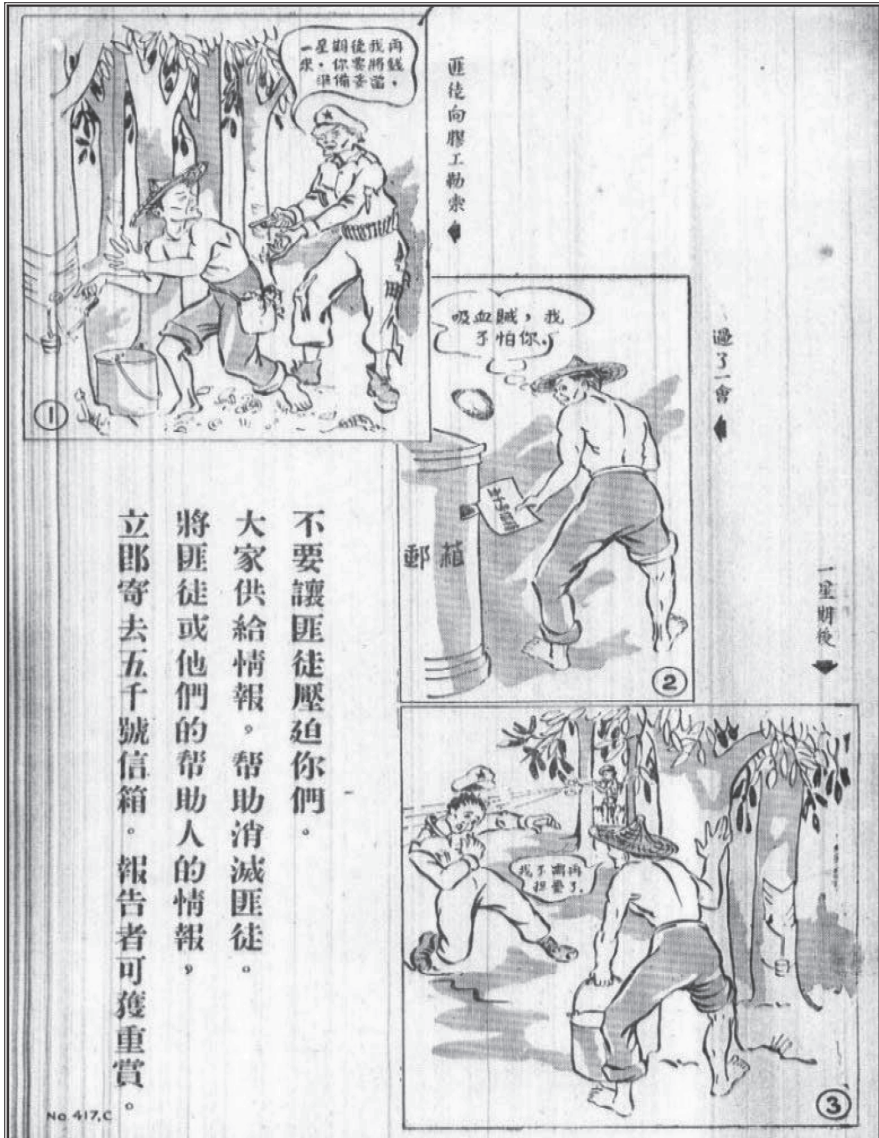 一星期後我再
來，你需將錢
準備妥當，
匪徒向膠工勒索
①
吸血賊，我
不怕你。
過了一會
郵箱
②
一星期後
我不需再
担憂了。
③
不要讓匪徒壓迫你們。
大家供給情報，帮助消滅匪徒。
將匪徒或他們的帮助人的情報，
立即寄去五千號信箱。報告者可獲重賞。
No. 417.C